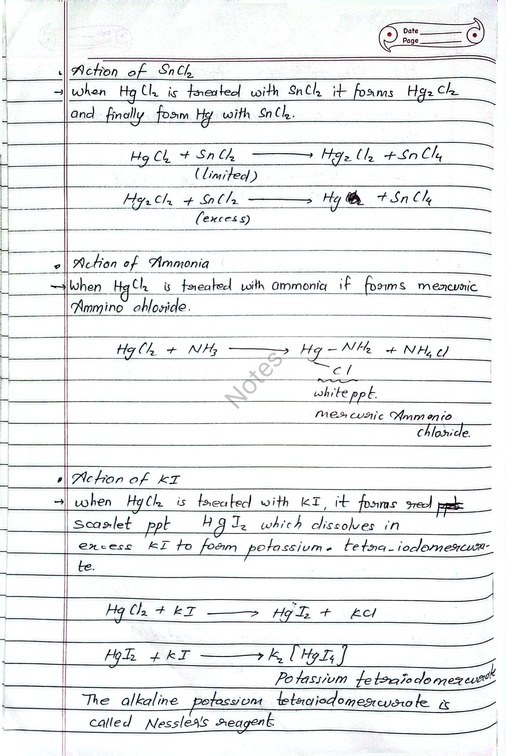 Date
Page
Action of SnCl2
→ when HgCl2 is treated with SnCl2 it forms Hg2Cl2
and finally form Hg with SnCl2.
HgCl2 + SnCl2 ⟶ Hg2Cl2 + SnCl4
(limited)
Hg2Cl2 + SnCl2 ⟶ Hg + SnCl4
(excess)
• Action of Ammonia
→ When HgCl2 is treated with ammonia if forms mercuric
Ammino chloride.
HgCl2 + NH3 ⟶ Hg - NH2 + NH4Cl
Cl
white ppt.
mercuric Ammonio
chloride.
Notes
• Action of KI
→ when HgCl2 is treated with KI, it forms red
scarlet ppt HgI2 which dissolves in
excess KI to form potassium. tetra-iodomercura-
te.
HgCl2 + KI ⟶ HgI2 + KCl
HgI2 + KI ⟶ K2[HgI4]
Potassium tetraiodomercurate
The alkaline potassium tetraiodomercurate is
called Nessler's reagent.